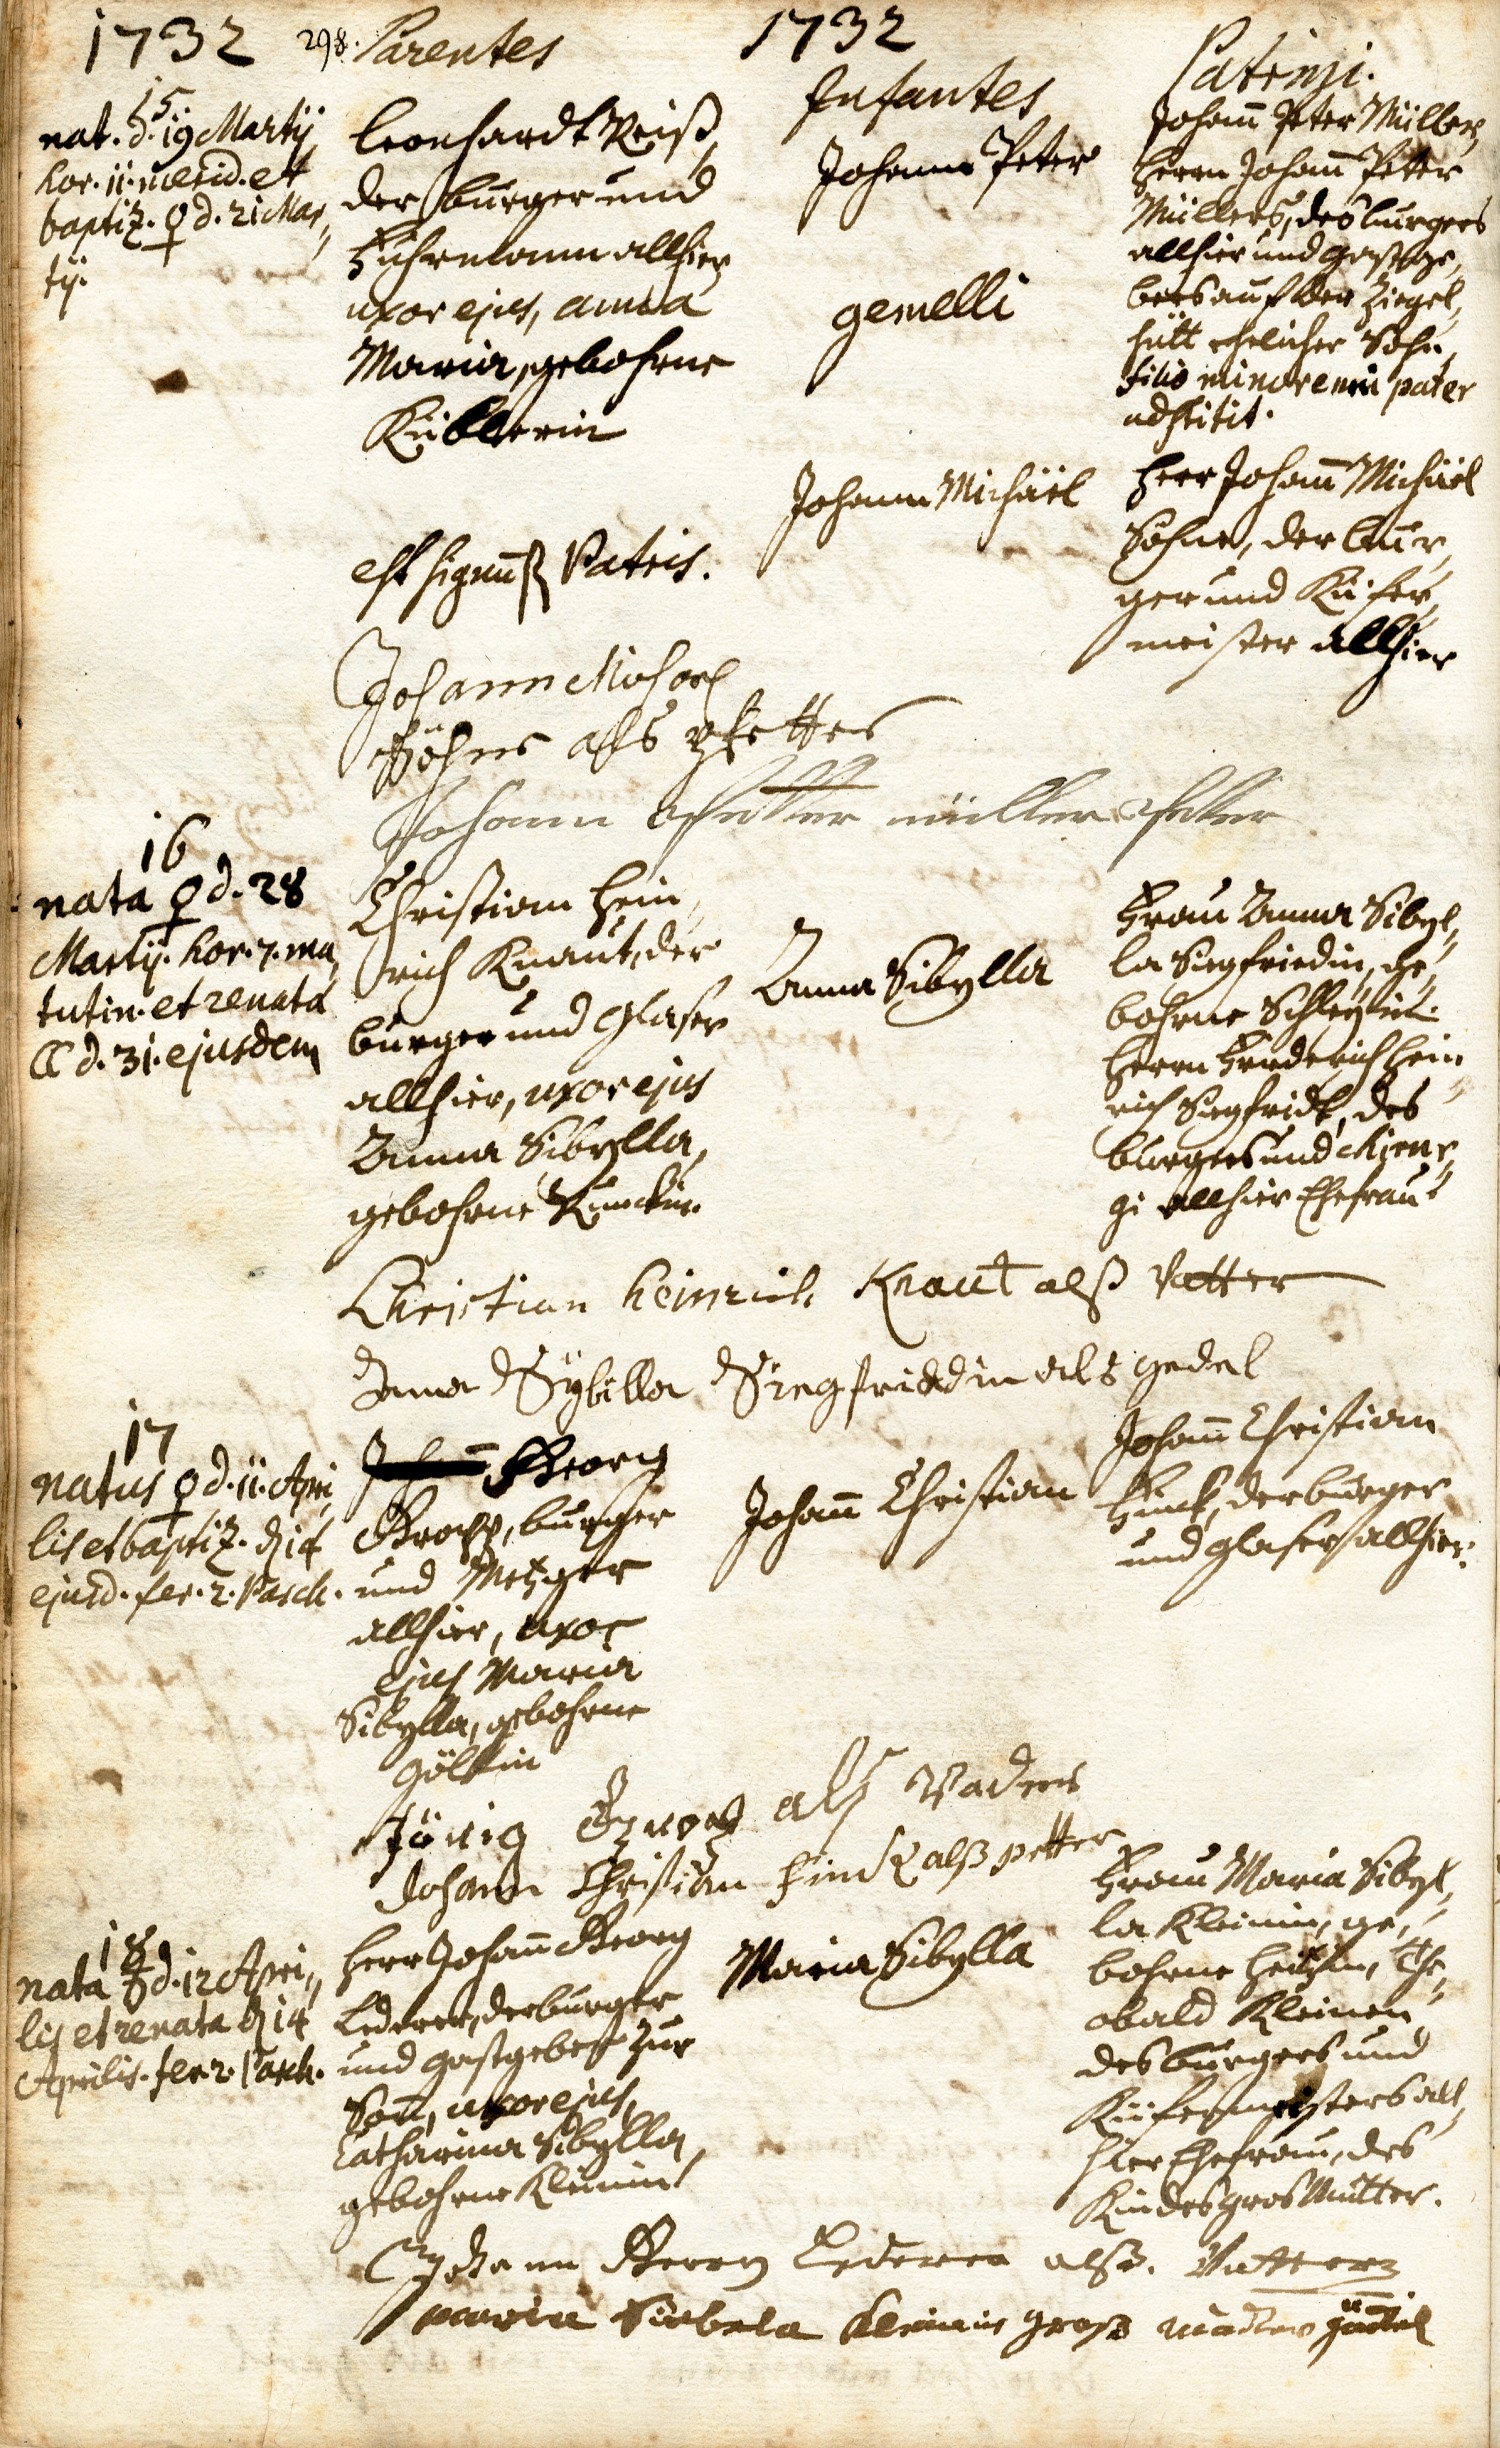 1732
298.
Parentes
1732
Infantes
Patrini.
15
nat. d. 19 Martij
hor. 11. merid. et
baptiz. ♀ d. 21 Mar„
tij.
Leonhardt Reiß,
der burger und
Fuhrmann allhier
uxor ejus, anna
Maria, gebohrne
Küblerin
Johann Peter
gemelli
Johann Peter Müller,
Herrn Johann Peter
Müllers, des burgers
allhier und gastge„
bers auf der Ziegel„
hütt ehelicher Sohn,
filio minorenni pater
adstitit.
Johann Michäel
Herr Johann Michäel
Böhne, der bur„
ger und Küfer„
meister allhier
est signum Patris.
Johann Michael
Böhne als Pfetter
Johann Petter müller Petter
16
nata ♀ d. 28
Martij. hor. 7. ma„
tutin. et renata
☾ d. 31. ejusdem
Christian Hein„
rich Knaut, der
burger und Glaser
allhier, uxor ejus
Anna Sibylla,
gebohrne
Anna Sibylla
Frau Anna Sibyl„
la Siegfriedin, ge„
bohrne
Herrn Friderich Hein„
rich Siegfridt, des
burgers und Chirur„
gi allhier Ehefrau
Christian Heinrich Knaut alß Vatter
Anna Sybilla Siegfriedin als gedel
17
natus ♀ d. 11. Apri„
lis et baptiz. d 14
ejusd. fer. 2. Pasch.
Johann Georg
Kropp, burger
und Metzger
allhier, uxor
ejus Maria
Sibylla, gebohrne
Johann Christian
Johann Christian
Finck, der burger
und glaser allhier.
Jörig alß Vader
Johann Christian Finck alß petter
18
nata d. 12 Apri„
lis et renata d 14
Aprilis. fer. 2. Pasch.
Herr Johann Georg
Lederer, der burger
und gastgeber zur
Sonn, uxor ejus,
Catharina Sibylla,
gebohrne Kleinin
Maria Sibylla
Frau Maria Sibyl„
la Kleinin, ge„
bohrne The„
obald Kleinen
des burgers und
Küfermeisters all„
hier Ehefrau, des
Kindes gros Mutter.
Johann Georg Lederer alß. Vatter
maria Siebela Kleinin groß muder gödel